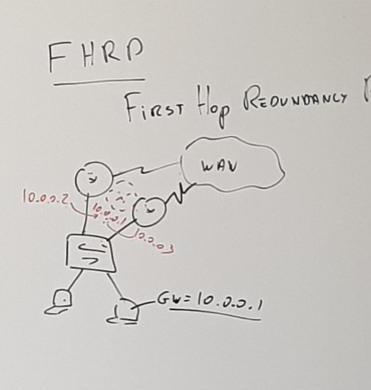 FHRP
FIRST HOP REDUNDANCY
WAN
10.0.0.2
10.0.0.1
10.0.0.3
GW=10.0.0.1